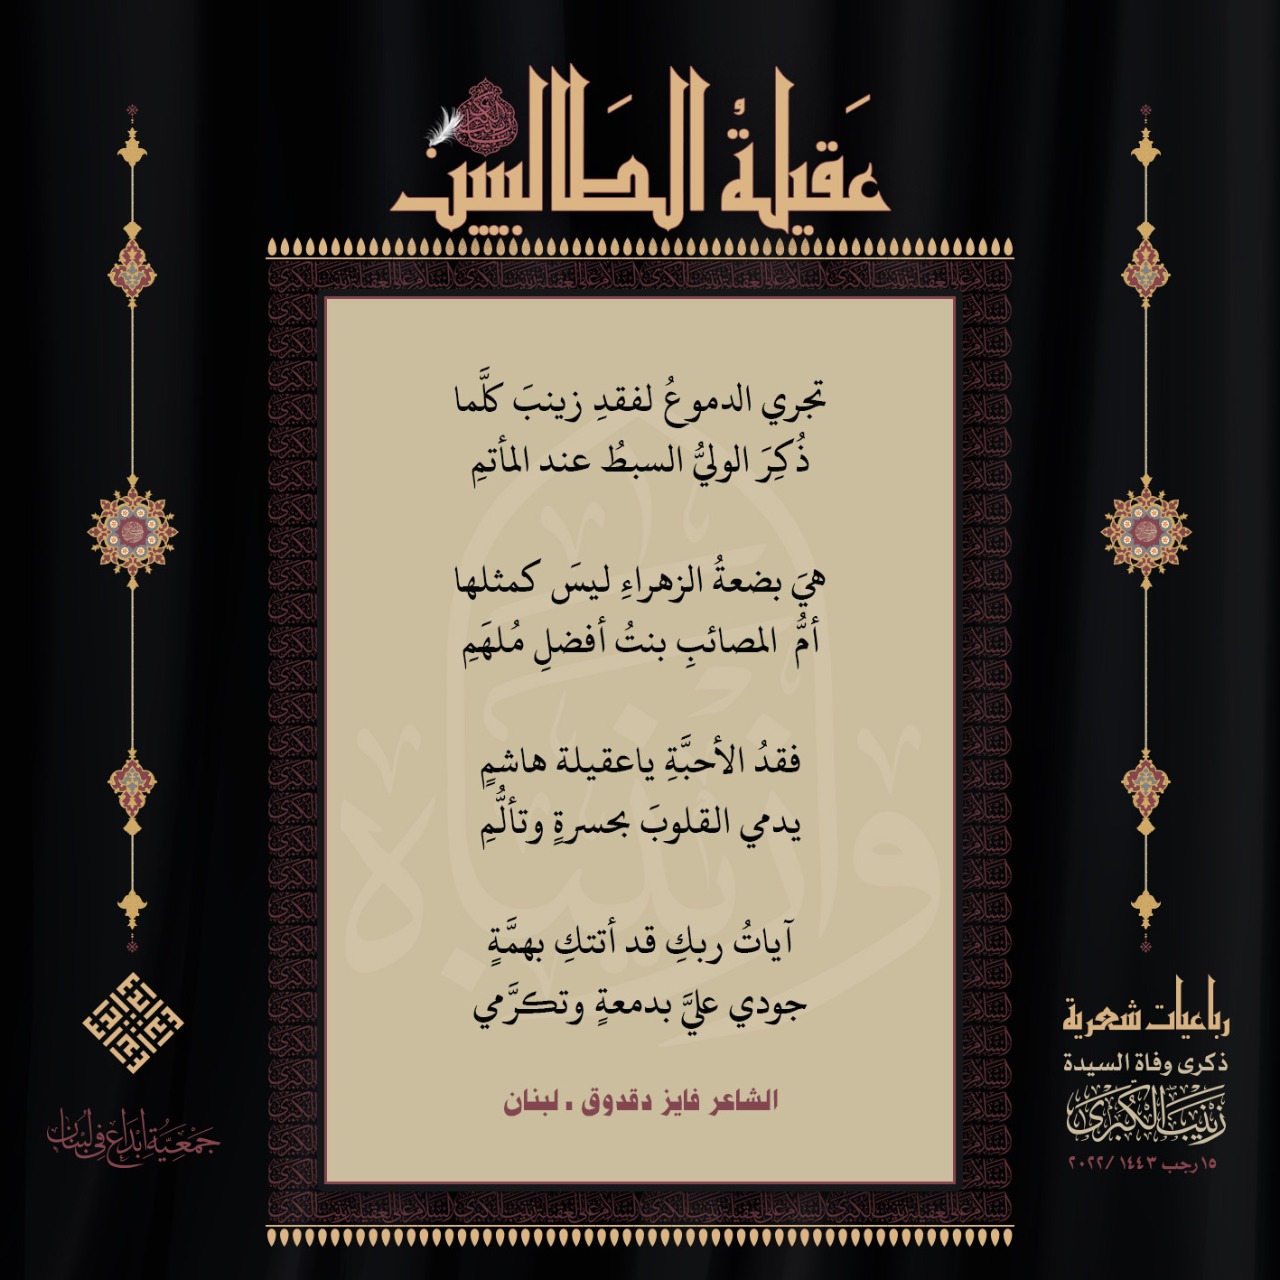 عَقيلةُ الطَالبيين
تجري الدموعُ لفقدِ زينبَ كلَّما
ذُكِرَ الوليُّ السبطُ عند المأتمِ
هيَ بضعةُ الزهراءِ ليسَ كمثلها
أمُّ المصائبِ بنتُ أفضلِ مُلهَمِ
فقدُ الأحبَّةِ ياعقيلة هاشمٍ
يدمي القلوبَ بحسرةٍ وتألُّمِ
آياتُ ربكِ قد أتتكِ بهمَّةٍ
جودي عليَّ بدمعةٍ وتكرَّمي
الشاعر فايز دقدوق . لبنان
رباعيات شعرية
ذكرى وفاة السيدة
زَيْنَبَ الْكُبْرَىٰ
١٥ رجب ١٤٤٣ /٢٠٢٢
جَمْعِيَّةُ إِبْدَاع فِي لُبْنَان
وازينباه